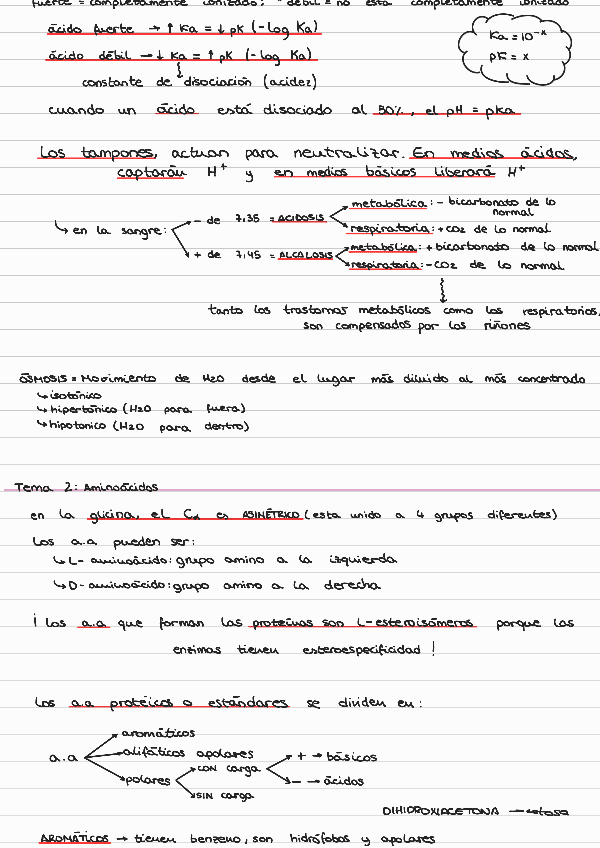 fuerte = completamente ionizado; débil = no está completamente ionizado
ácido fuerte → ↑ Ka = ↓ pK (-log Ka)
Ka = 10⁻ˣ
ácido débil → ↓ Ka = ↑ pK (-log Ka)
pK = x
constante de disociación (acidez)
cuando un ácido está disociado al 50%, el pH = pKa
Los tampones, actuan para neutralizar. En medios ácidos,
captarán H⁺ y en medios básicos liberará H⁺
metabólica: - bicarbonato de lo
normal
- de 7,35 = ACIDOSIS
↳ en la sangre:
respiratoria: + CO2 de lo normal
metabólica: + bicarbonato de lo normal
+ de 7,45 = ALCALOSIS
respiratoria: - CO2 de lo normal
tanto los trastornos metabólicos como los respiratorios,
son compensados por los riñones
ÓSMOSIS = Movimiento de H2O desde el lugar más diluido al más concentrado
↳ isotónico
↳ hipertónico (H2O para fuera)
↳ hipotonico (H2O para dentro)
Tema 2: Aminoácidos
en la glicina, el Cα es ASIMÉTRICO (esta unido a 4 grupos diferentes)
Los a.a pueden ser:
↳ L- aminoácido: grupo amino a la izquierda
↳ D- aminoácido: grupo amino a la derecha
¡ los a.a que forman las proteínas son L-esteroisómeros porque las
enzimas tienen esteroespecificidad !
Los a.a protéicos o estándares se dividen en:
aromáticos
alifáticos apolares
a.a
+ → básicos
con carga
polares
- → ácidos
SIN carga
DIHIDROXIACETONA → cetosa
AROMÁTICOS → tienen benzeno, son hidrófobos y apolares